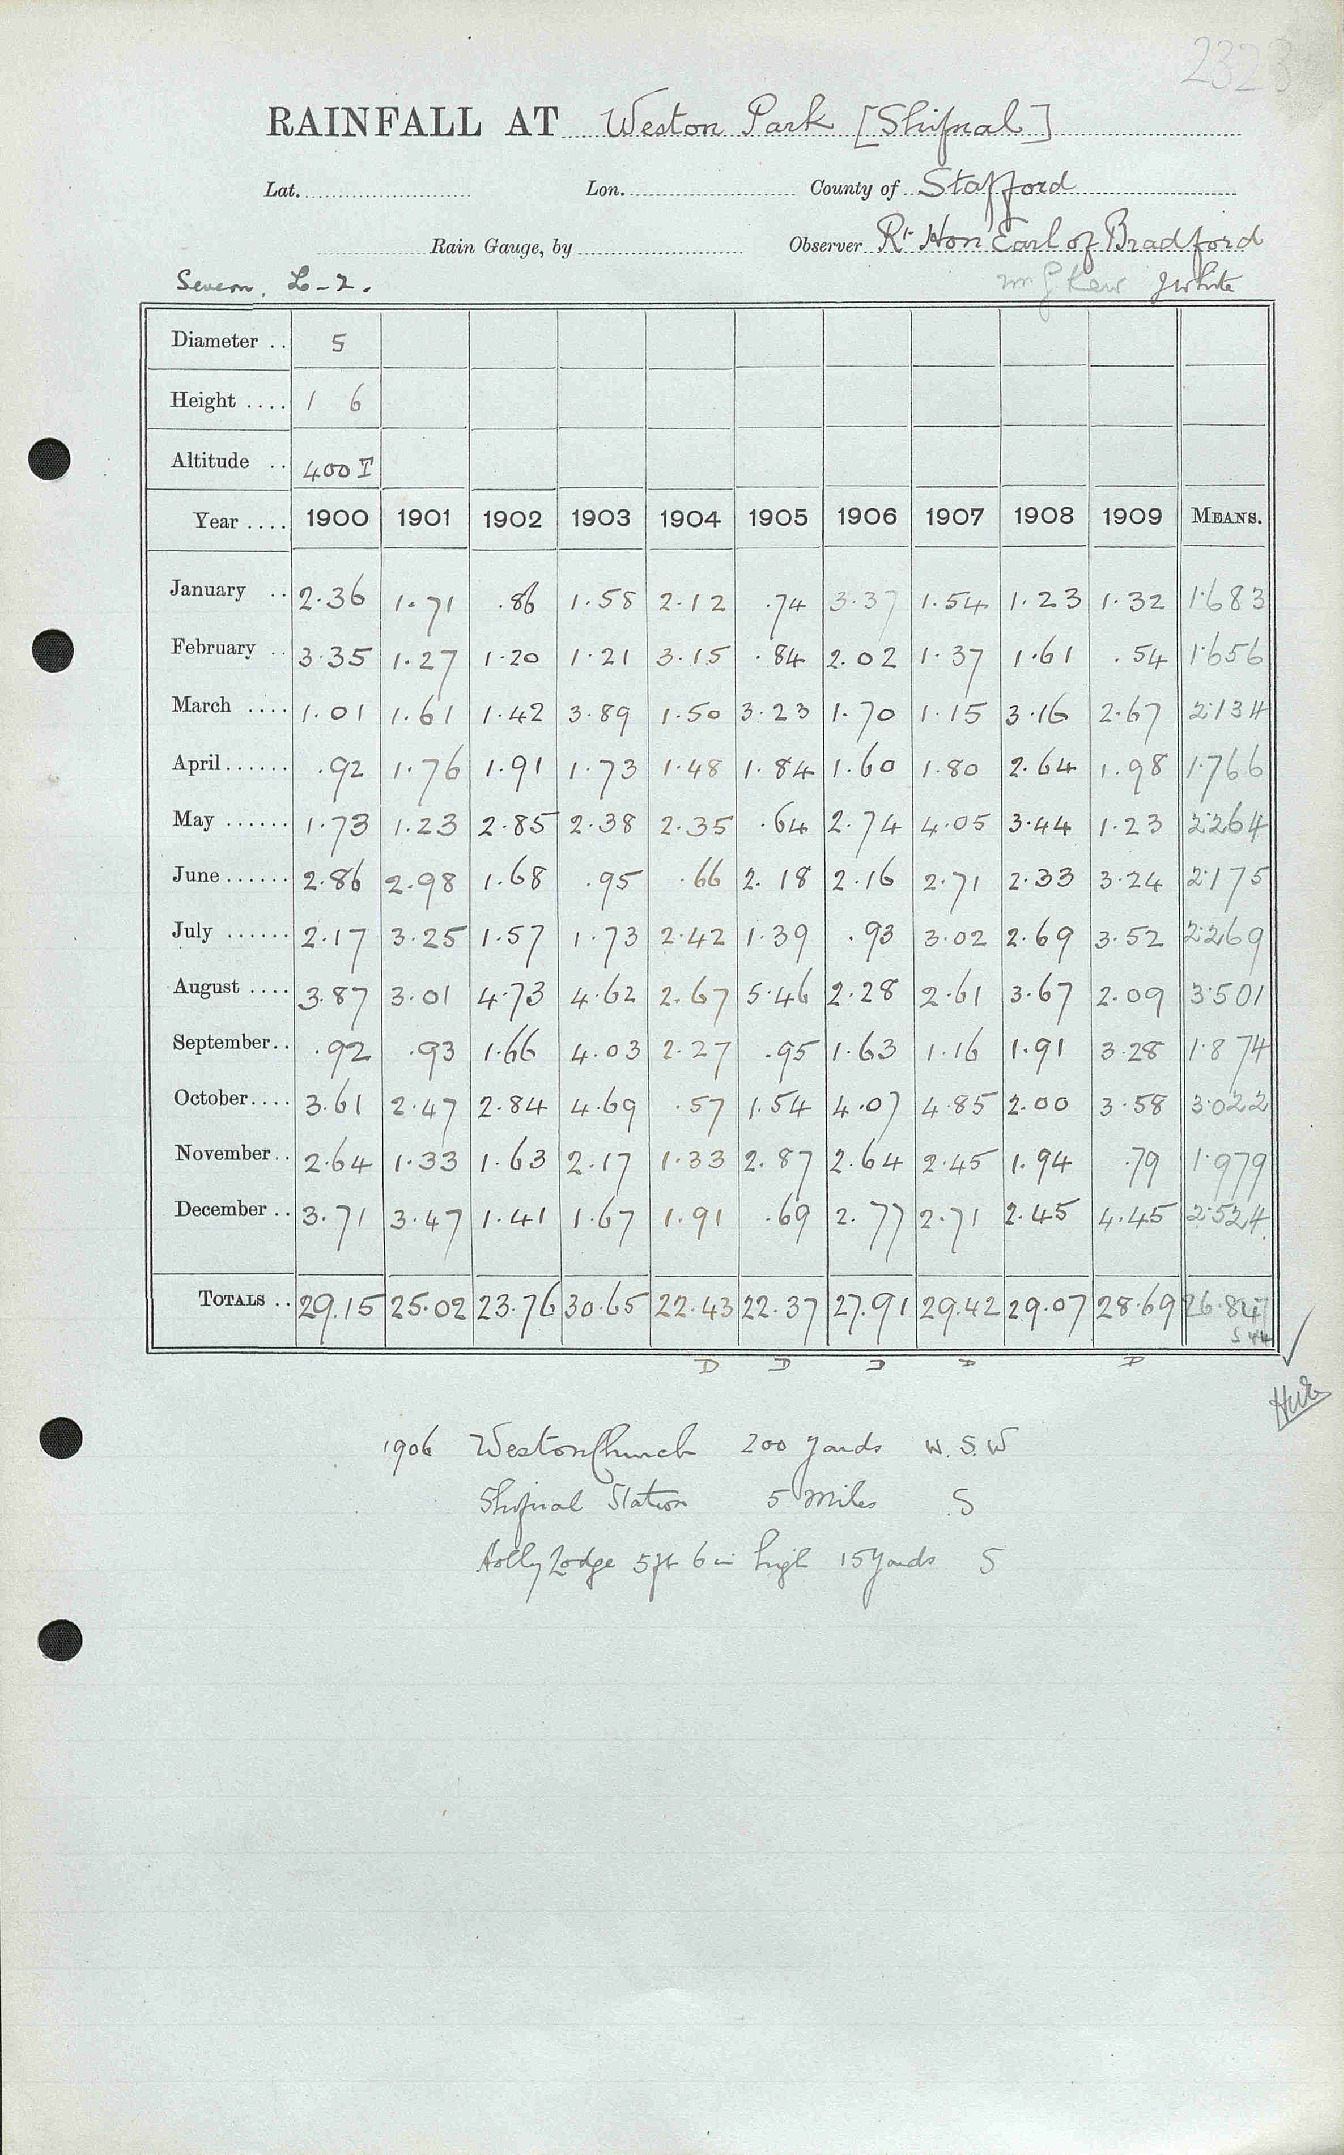 2323
RAINFALL AT Weston Park [Shifnal]
Lat. Lon. County of Stafford
Rain Gauge, by Observer Rt Hon Earl of Bradford
Severn. L-2. J White
Diameter .. 5
Height .... 1 6
Altitude .. 400 T
Year .... 1900 1901 1902 1903 1904 1905 1906 1907 1908 1909 MEANS.
January .. 2.36 1.71 .86 1.58 2.12 .74 3.37 1.54 1.23 1.32 1.683
February .. 3.35 1.27 1.20 1.21 3.15 .84 2.02 1.37 1.61 .54 1.656
March .... 1.01 1.61 1.42 3.89 1.50 3.23 1.70 1.15 3.16 2.67 2.134
April...... .92 1.76 1.91 1.73 1.48 1.84 1.60 1.80 2.64 1.98 1.766
May ...... 1.73 1.23 2.85 2.38 2.35 .64 2.74 4.05 3.44 1.23 2.264
June...... 2.86 2.98 1.68 .95 .66 2.18 2.16 2.71 2.33 3.24 2.175
July ...... 2.17 3.25 1.57 1.73 2.42 1.39 .93 3.02 2.69 3.52 2.269
August .... 3.87 3.01 4.73 4.62 2.67 5.46 2.28 2.61 3.67 2.09 3.501
September.. .92 .93 1.66 4.03 2.27 .95 1.63 1.16 1.91 3.28 1.874
October.... 3.61 2.47 2.84 4.69 .57 1.54 4.07 4.85 2.00 3.58 3.022
November.. 2.64 1.33 1.63 2.17 1.33 2.87 2.64 2.45 1.94 .79 1.979
December .. 3.71 3.47 1.41 1.67 1.91 .69 2.77 2.71 2.45 4.45 2.524
TOTALS .. 29.15 25.02 23.76 30.65 22.43 22.37 27.91 29.42 29.07 28.69 26.847
D D D D D
1906 Weston Church 200 yards W.S.W
Shifnal Station 5 Miles S
Holly Lodge 5ft 6in high 15 Yards S